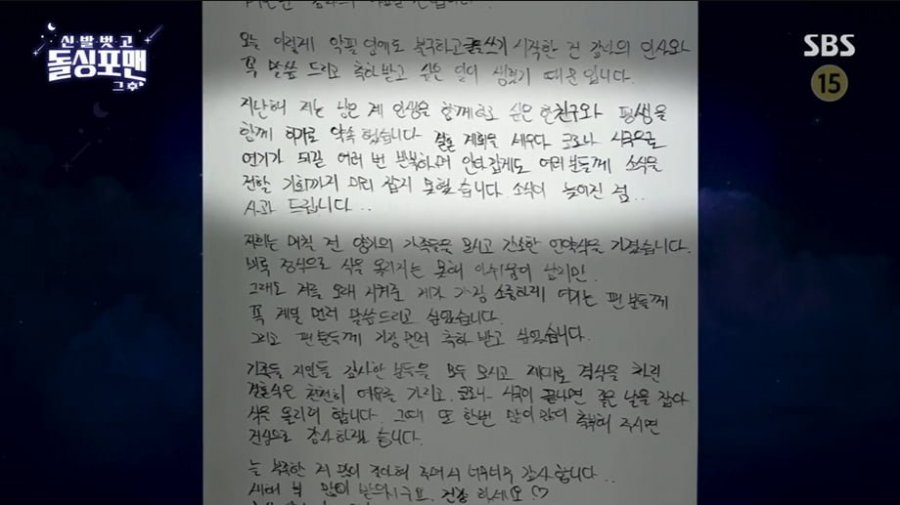 신발벗고
돌싱포맨
그후
SBS
15
오늘 이렇게 악필 임에도 불구하고 글쓰기 시작한 건 감사의 인사와
꼭 말씀 드리고 축하 받고 싶은 일이 생겼기 때문입니다.
지난해 저는 남은 제 인생을 함께하고 싶은 한 친구와 평생을
함께 하기로 약속 했습니다 결혼 계획을 세우다 코로나 시국으로
연기가 되길 여러 번 반복하며 안타깝게도 여러분들께 소식을
전할 기회까지 미리 잡지 못했습니다. 소식이 늦어진 점
사과 드립니다..
저희는 며칠 전 양가의 가족들을 모시고 간소한 언약식을 가졌습니다.
비록 정식으로 식을 올리지는 못해 아쉬움이 남지만
그래도 저를 오래 지켜준 제가 가장 소중하게 여기는 팬 분들께
꼭 제일 먼저 말씀드리고 싶었습니다.
그리고 팬분들께 가장 먼저 축하 받고 싶었습니다.
가족들 지인들 감사한 분들을 모두 모시고 제대로 격식을 차린
결혼식은 천천히 여유를 가지고, 코로나 시국이 끝나면 좋은 날을 잡아
식을 올리려 합니다. 그때 또 한번 많이 많이 축복해 주시면
진심으로 감사하겠습니다.
늘 부족한 저 많이 좋아해 주셔서 너무너무 감사합니다..
새해 복 많이 받으시구요. 건강 하세요 ♡